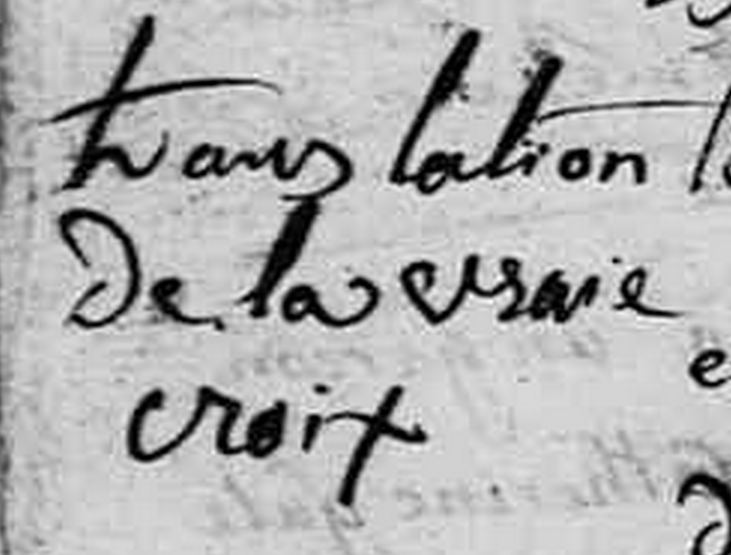 translation
De la vraie
croix